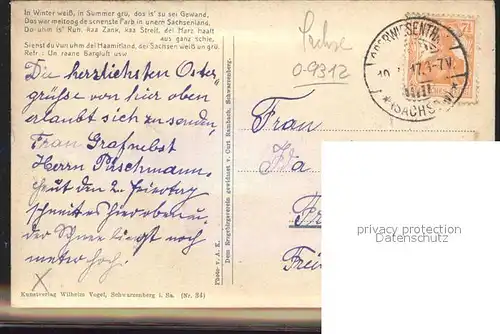 In Winter weiß, in Summer grü, dos is' su sei Gewand,
Dos war meitog de schenste Farb in unern Sachsenland.
Do uhm is' Ruh, kaa Zank, kaa Streit, dei Harz haalt
aus ganz schie,
Sienst du vun uhm dei Haamitland, dei Sachsen weiß un grü.
Refr.: Un raane Bargluft usw
Sachse
0-9312
OBERWIESENTHAL
17.1-7N.
*(SACHSEN)*
7½
Die herzlichsten Oster-
grüsse von hier oben
erlaubt sich zu senden,
Frau Graf nebst
Herrn Püschmann.
Heut den 2. Feiertag
schneit es hieroben u.
der Schnee liegt noch
meter hoch.
Frau
Ida
Fr
Frei
Photo v. A. K.
Dem Erzgebirgsverein gewidmet v. Curt Rambach, Schwarzenberg.
Kunstverlag Wilhelm Vogel, Schwarzenberg i. Sa. (Nr. 34)
privacy protection
Datenschutz